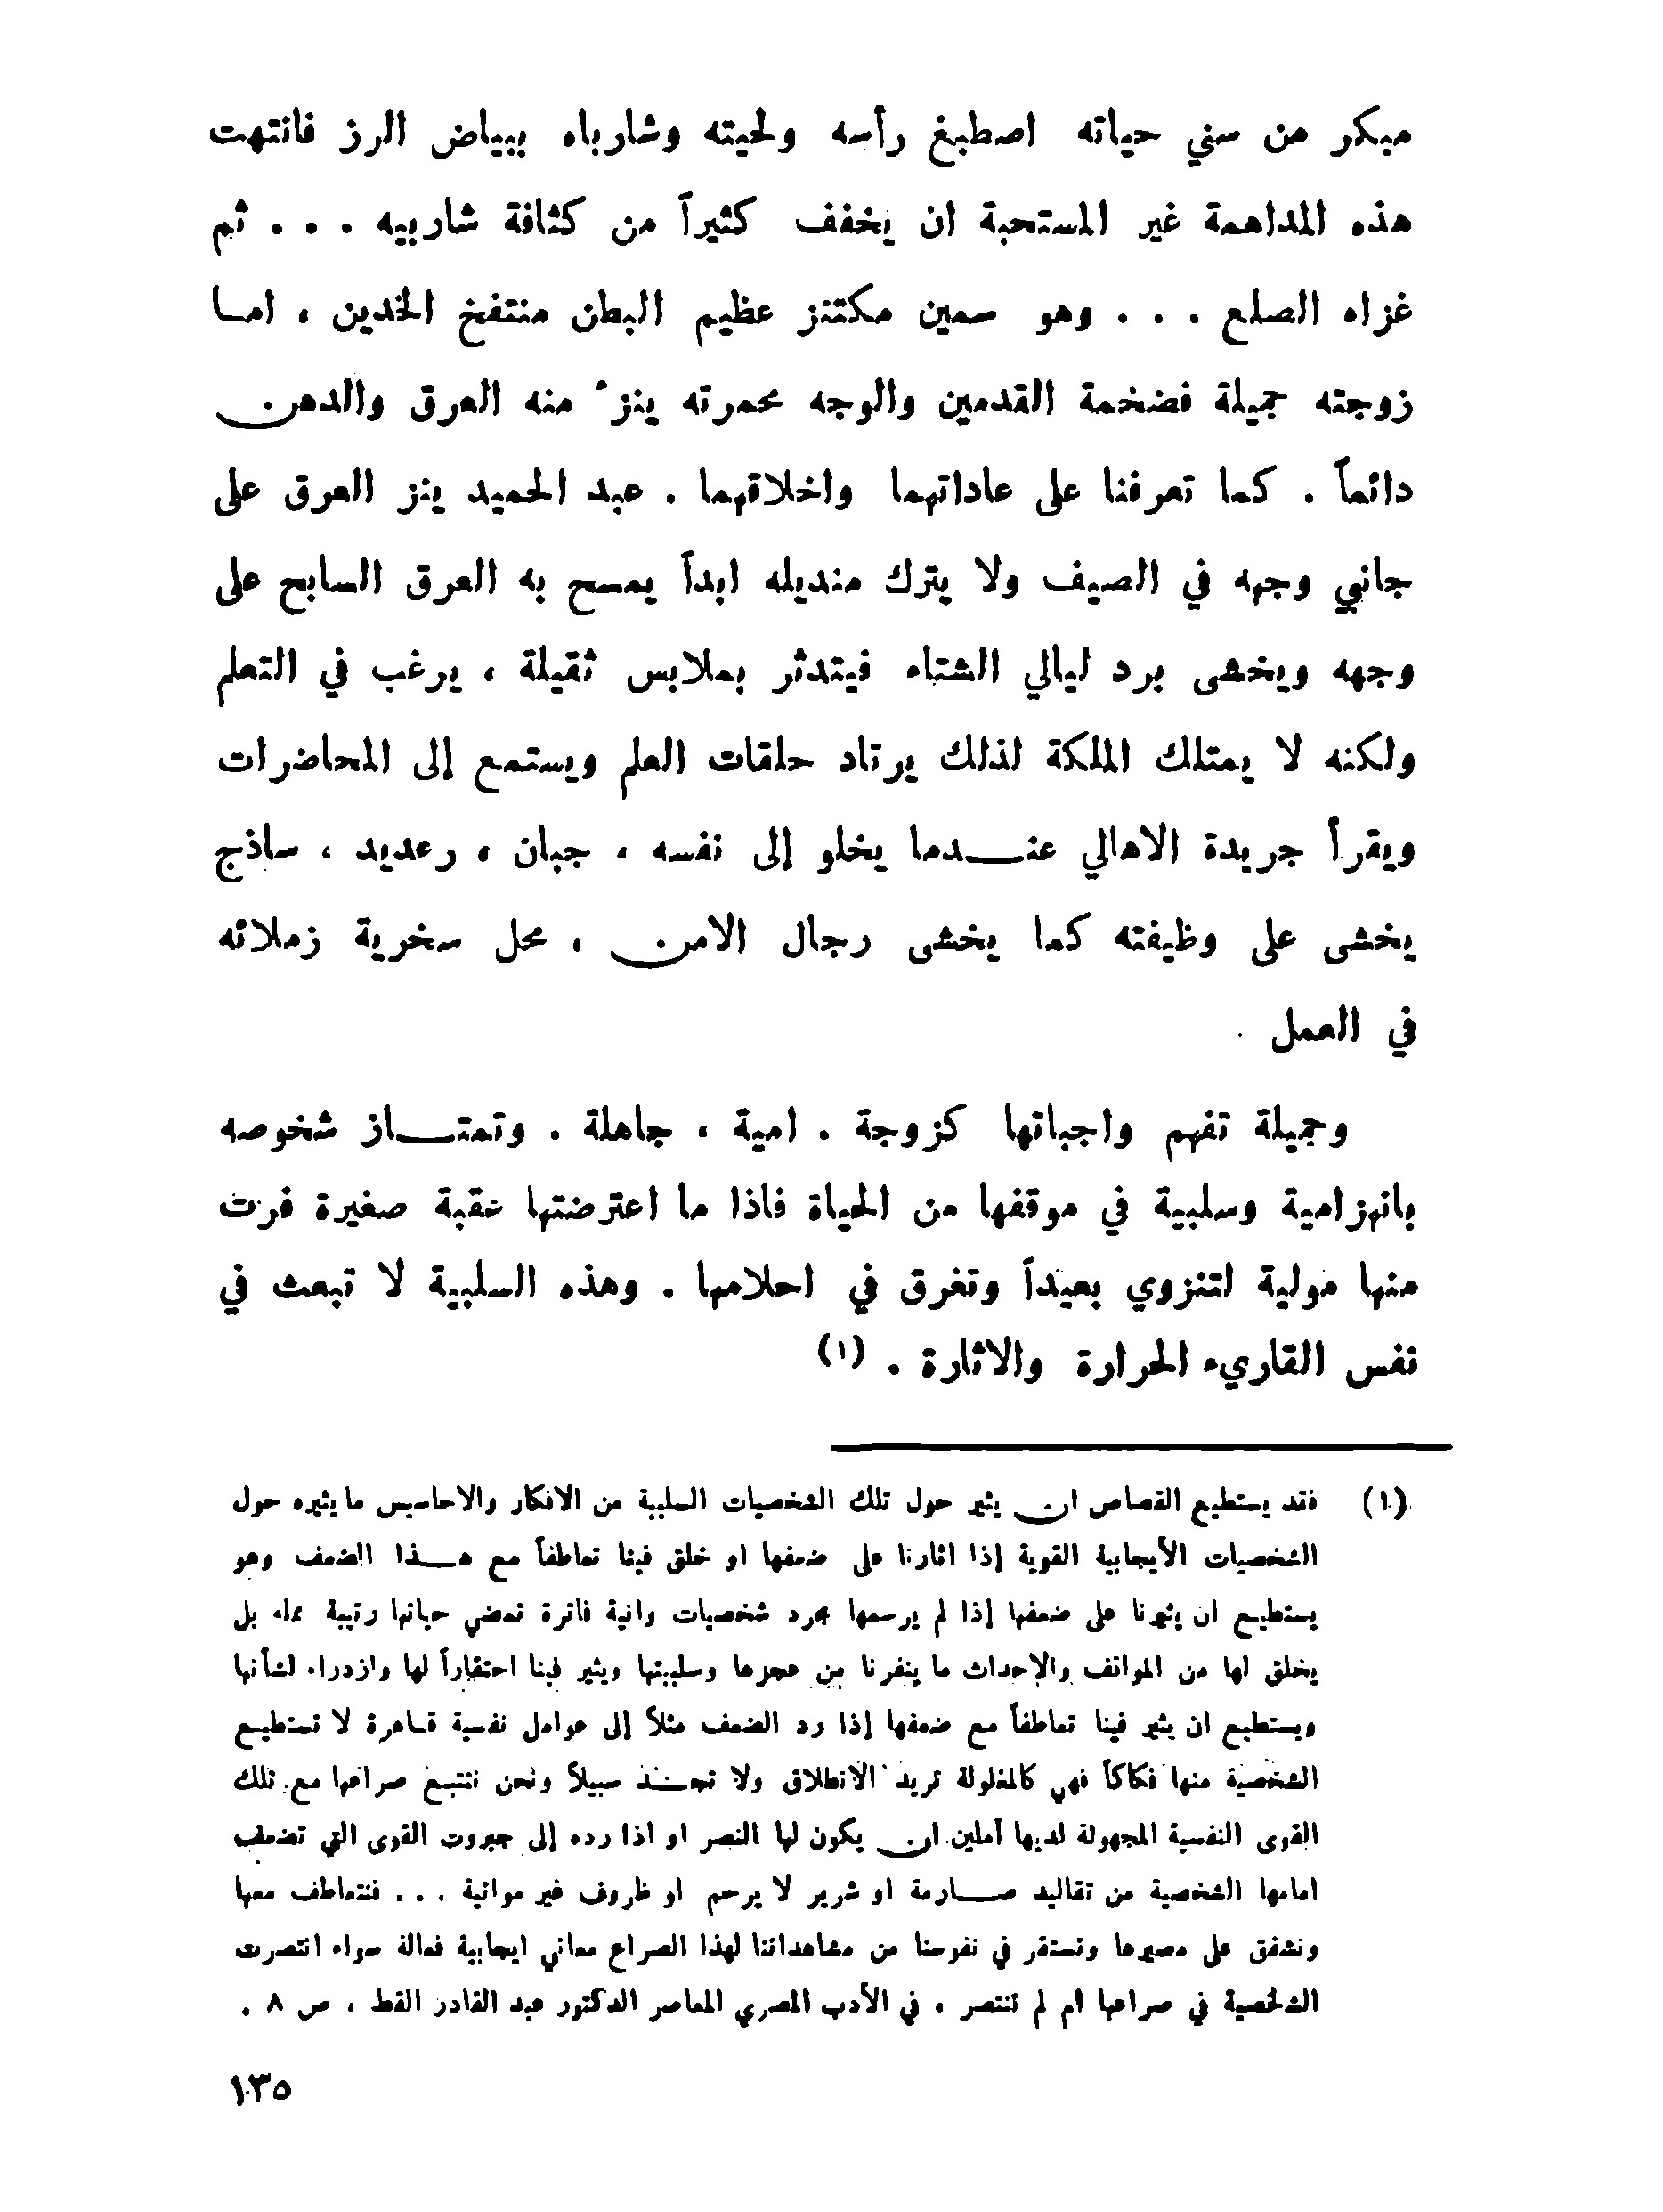 مبكر من سني حياته اصطبغ رأسه ولحيته وشارباه ببياض الرز فانتهت
هذه المداهمة غير المستحبة ان يخفف كثيراً من كثافة شاربيه . . . ثم
غزاه الصلع . . . وهو سمين مكتنز عظيم البطن منتفخ الخدين ، اما
زوجته جميلة فضخمة القدمين والوجه محمرته ينزّ منه العرق والدهن
دائماً . كما تعرفنا على عاداتهما واخلاقهما . عبد الحميد ينز العرق على
جانبي وجهه في الصيف ولا يترك منديله ابداً يمسح به العرق السابح على
وجهه ويخشى برد ليالي الشتاء فيتدثر بملابس ثقيلة ، يرغب في التعلم
ولكنه لا يمتلك الملكة لذلك يرتاد حلقات العلم ويستمع إلى المحاضرات
ويقرأ جريدة الاهالي عندما يخلو إلى نفسه ، جبان ، رعديد ، ساذج
يخشى على وظيفته كما يخشى رجال الامن ، محل سخرية زملائه
في العمل .
وجميلة تفهم واجباتها كزوجة . امية ، جاهلة . وتمتاز شخوصه
بانهزامية وسلبية في موقفها من الحياة فاذا ما اعترضتها عقبة صغيرة فرت
منها مولية لتنزوي بعيداً وتغرق في احلامها . وهذه السلبية لا تبعث في
نفس القاريء الحرارة والاثارة . (١)
(١) فقد يستطيع القصاص ان يثير حول تلك الشخصيات السلبية من الافكار والاحاسيس ما يثيره حول
الشخصيات الأيجابية القوية إذا اثارنا على ضعفها او خلق فينا تعاطفاً مع هذا الضعف وهو
يستطيع ان يثيرنا على ضعفها إذا لم يرسمها مجرد شخصيات وانية فاترة تمضي حياتها رتيبة مملة بل
يخلق لها من المواقف والاحداث ما ينفرنا من عجزها وسلبيتها ويثير فينا احتقاراً لها وازدراء لشأنها
ويستطيع ان يثير فينا تعاطفاً مع ضعفها إذا رد الضعف مثلاً إلى عوامل نفسية قاهرة لا تستطيع
الشخصية منها فكاكاً فهي كالمغلولة تريد الانطلاق ولا تجد سبيلاً ونحن نتتبع صراعها مع تلك
القوى النفسية المجهولة لديها آملين ان يكون لها النصر او اذا رده إلى جبروت القوى التي تضعف
امامها الشخصية من تقاليد صارمة او شرير لا يرحم او ظروف غير مواتية . . . فنتعاطف معها
ونشفق على مصيرها وتستقر في نفوسنا من مشاهداتنا لهذا الصراع معاني ايجابية فعالة سواء انتصرت
الشخصية في صراعها ام لم تنتصر . في الأدب المصري المعاصر الدكتور عبد القادر القط ، ص ٨ .
١٣٥